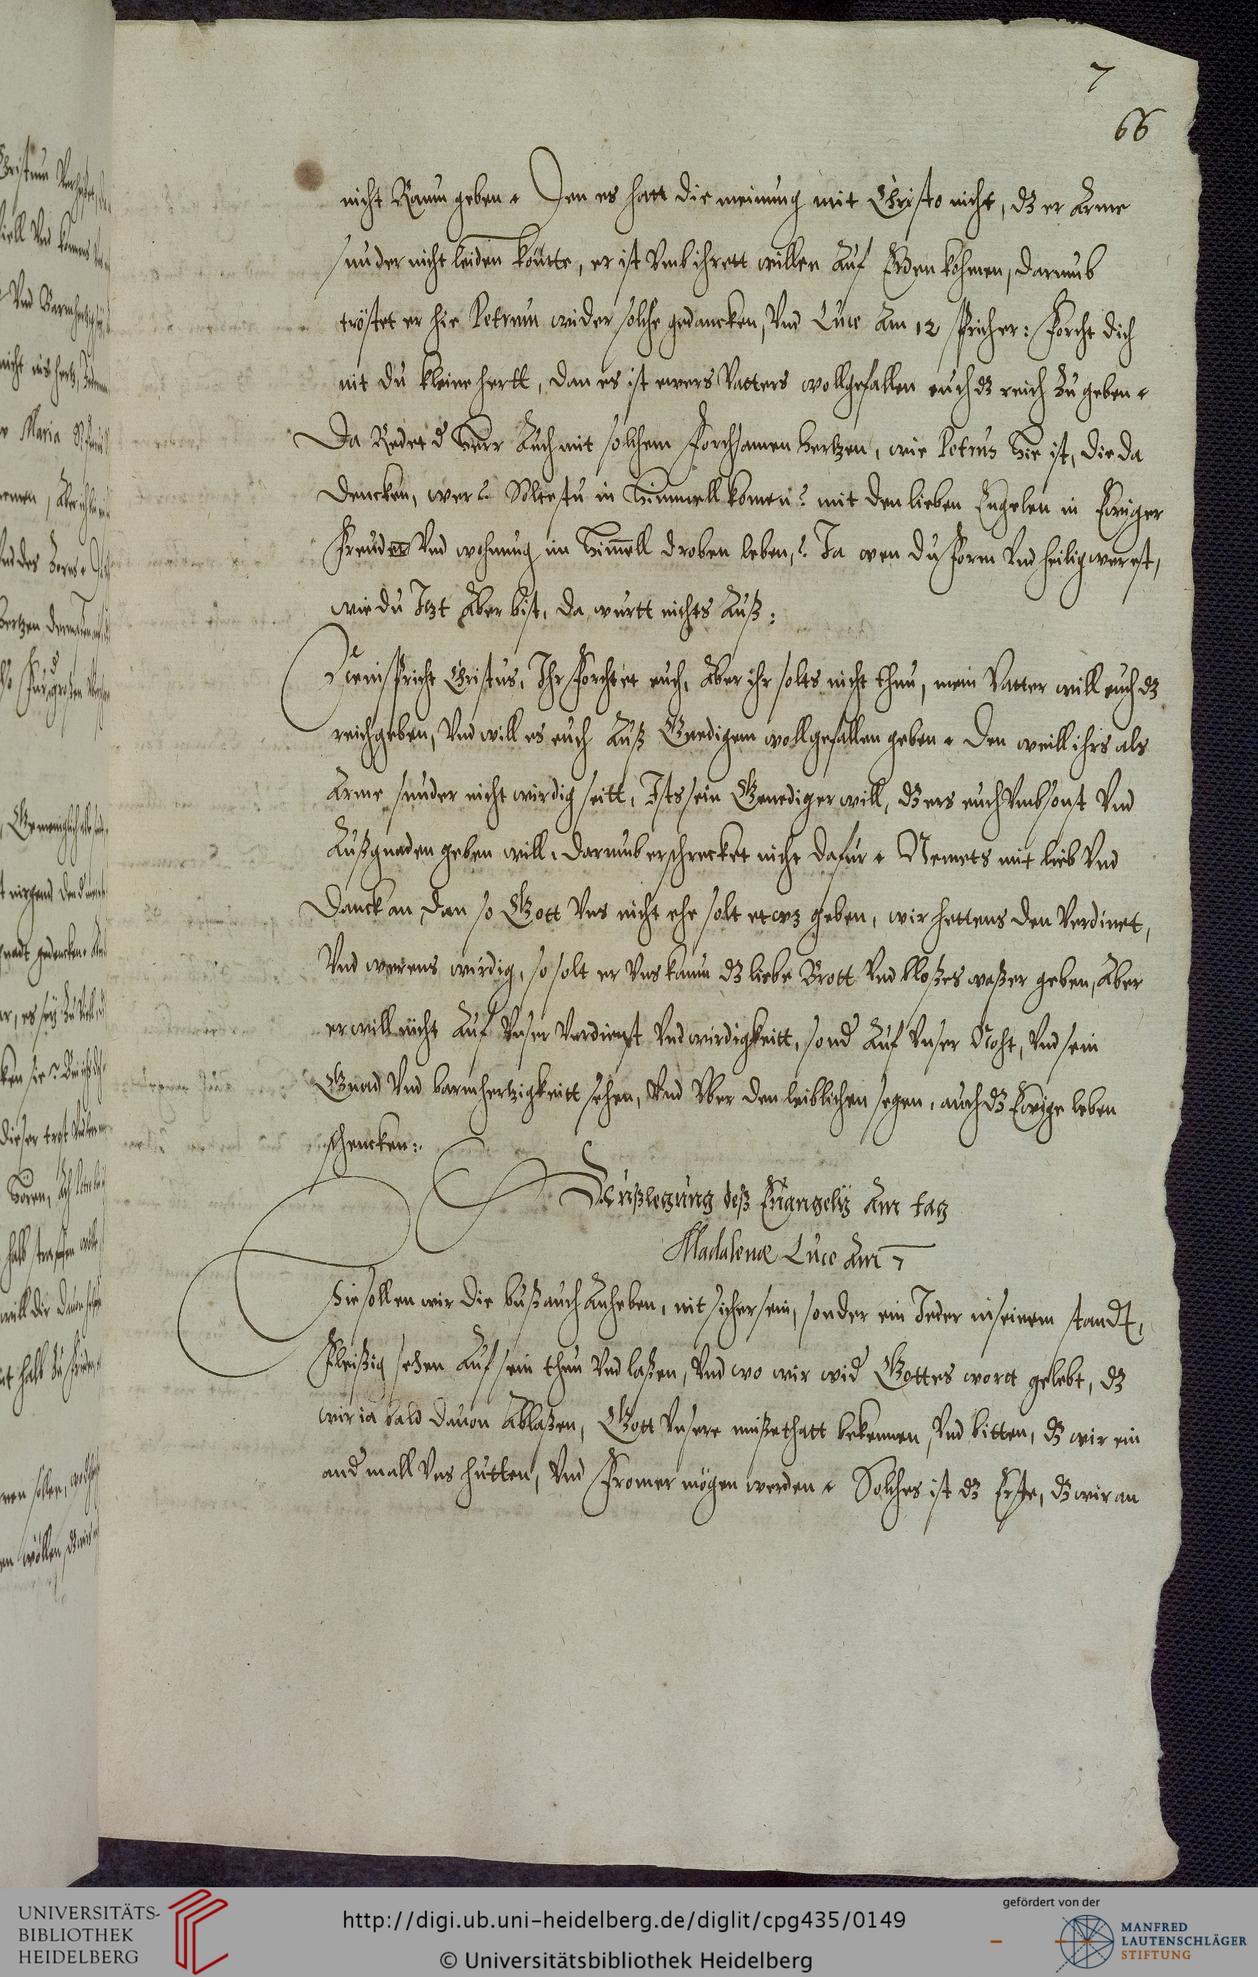 7
66
nicht Raum geben. Den es hatt die meinung mit Christo nicht, dz er Arme
sunder nicht leiden köntte, er ist Vmb ihrett willen Auf Erden kohmen, darumb
tröstet er hie Petrum wider solche gedancken, Vnd Luce Am 12 spricher: Forcht dich
nit du kleine hertt, dan es ist ewers Vatters wollgefallen euch dz reich Zu geben.
Da Redet d Herr Auch mit solchem forchsamen hertzen, wie Petrus hie ist, die da
dencken, wer? Soltestu in himmell komen? mit den lieben Engelen in Ewiger
freude Vnd wohnung im himell droben leben,? Ja wen du from Vnd heilig werest,
wie du Itzt Aber bist, da wurtt nichts Auß:
Nein spricht Cristus, Ihr forchtet euch, Aber ihr solts nicht thun, mein Vatter will euch dz
reich geben, Vnd will es euch Auß Gnedigem wollgefallen geben. Den weill ihrs als
Arme sunder nicht wirdig seitt, Ists sein Genediger will, dz ers euch Vmbsonst Vnd
Auß gnaden geben will. darumb erschrecket nicht dafur. Nemets mit lieb Vnd
danck an dan so Gott Vns nicht ehe solt etwz geben, wir hettens den Verdinet,
Vnd werens wirdig, so solt er Vns kaum dz liebe Brott Vnd bloßes waßer geben, Aber
er will nicht Auf Vnser Verdienst Vnd wirdigkeitt, sond Auf Vnser Noht, Vnd sein
Gnad Vnd barmhertzigkeitt sehen, Vnd Vber den leiblichen segen, auch dz Ewige leben
schencken:
Außlegung deß Euangelÿ Am tag
Madalenæ Luce Am 7
Hie sollen wir die buß auch Anheben, nit sicher sein, sonder ein Jeder in seinem standt,
fleißig sehen Auf sein thun Vnd laßen, Vnd wo wir wid Gottes wort gelebt, dz
wir ia bald dauon Ablaßen, Gott Vnsere mißethatt bekennen, Vnd bitten, dz wir ein
and mall Vns hutten, Vnd fromer mögen werden. Solches ist dz Erste, dz wir an
UNIVERSITÄTS-
BIBLIOTHEK
HEIDELBERG
http://digi.ub.uni-heidelberg.de/diglit/cpg435/0149
© Universitätsbibliothek Heidelberg
gefördert von der
MANFRED
LAUTENSCHLÄGER
STIFTUNG